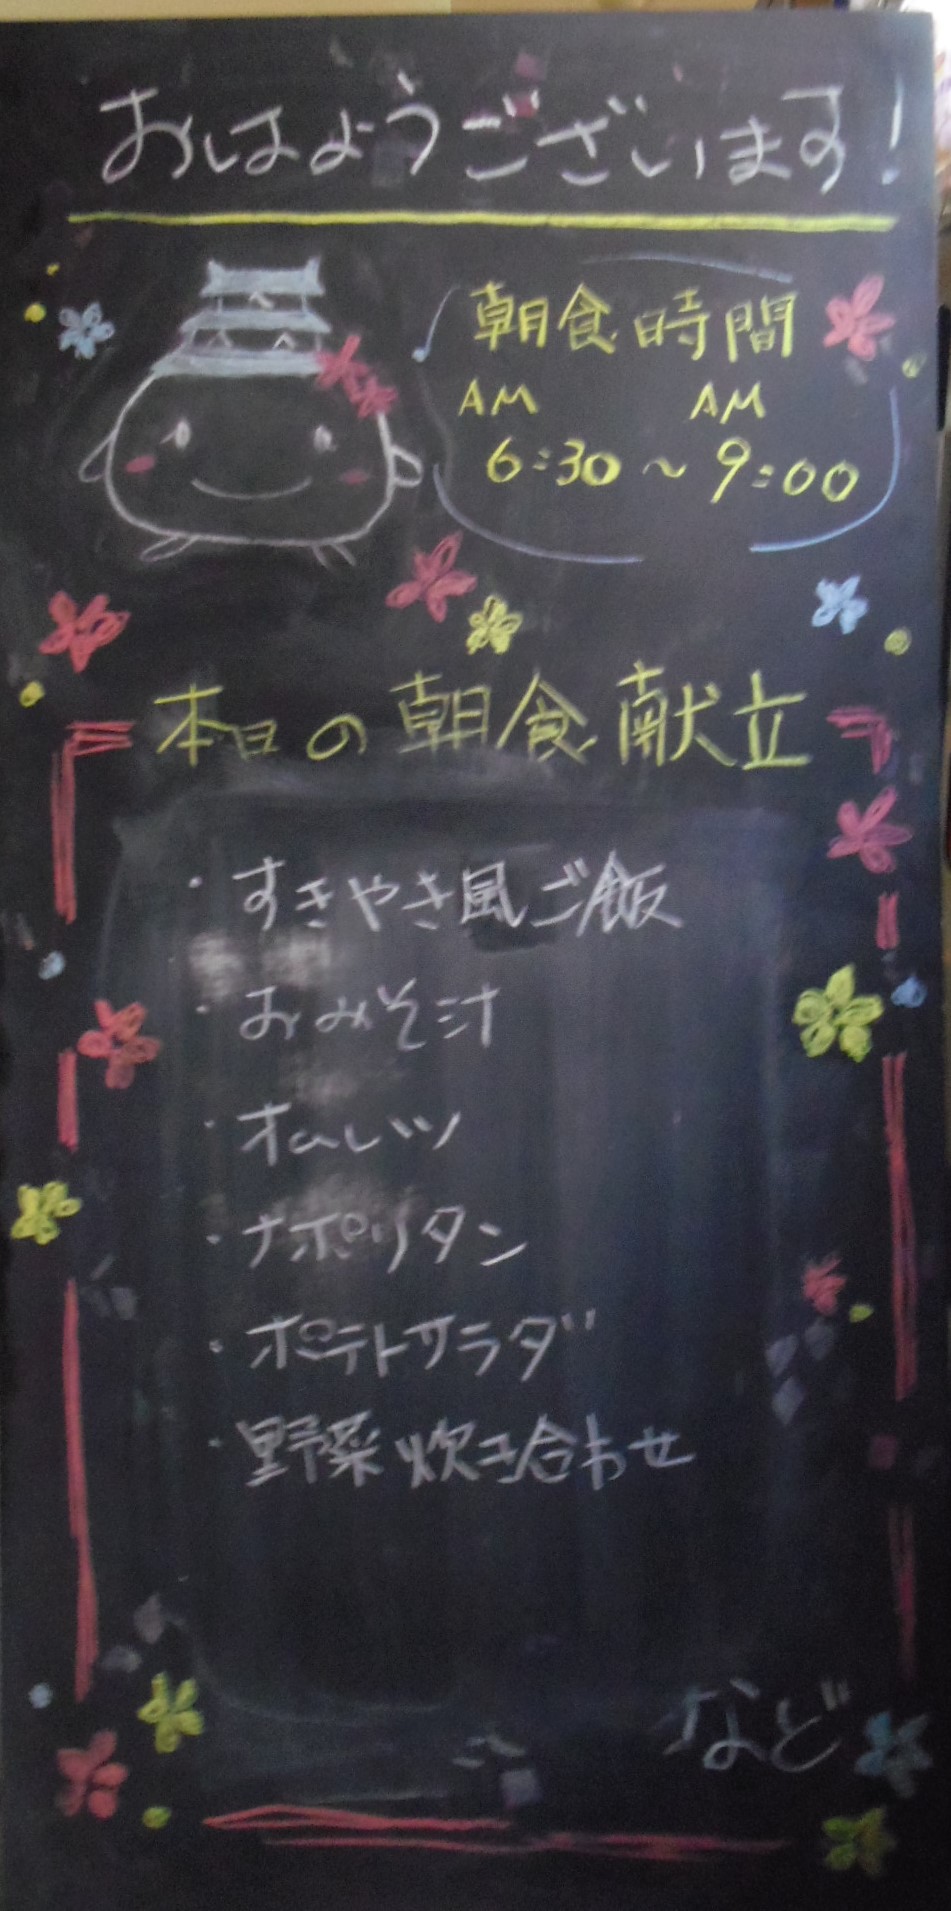 おはようございます!
朝食時間
AM AM
6:30~9:00
本日の朝食献立
・すきやき風ご飯
・おみそ汁
・オムレツ
・ナポリタン
・ポテトサラダ
・野菜炊き合わせ
など